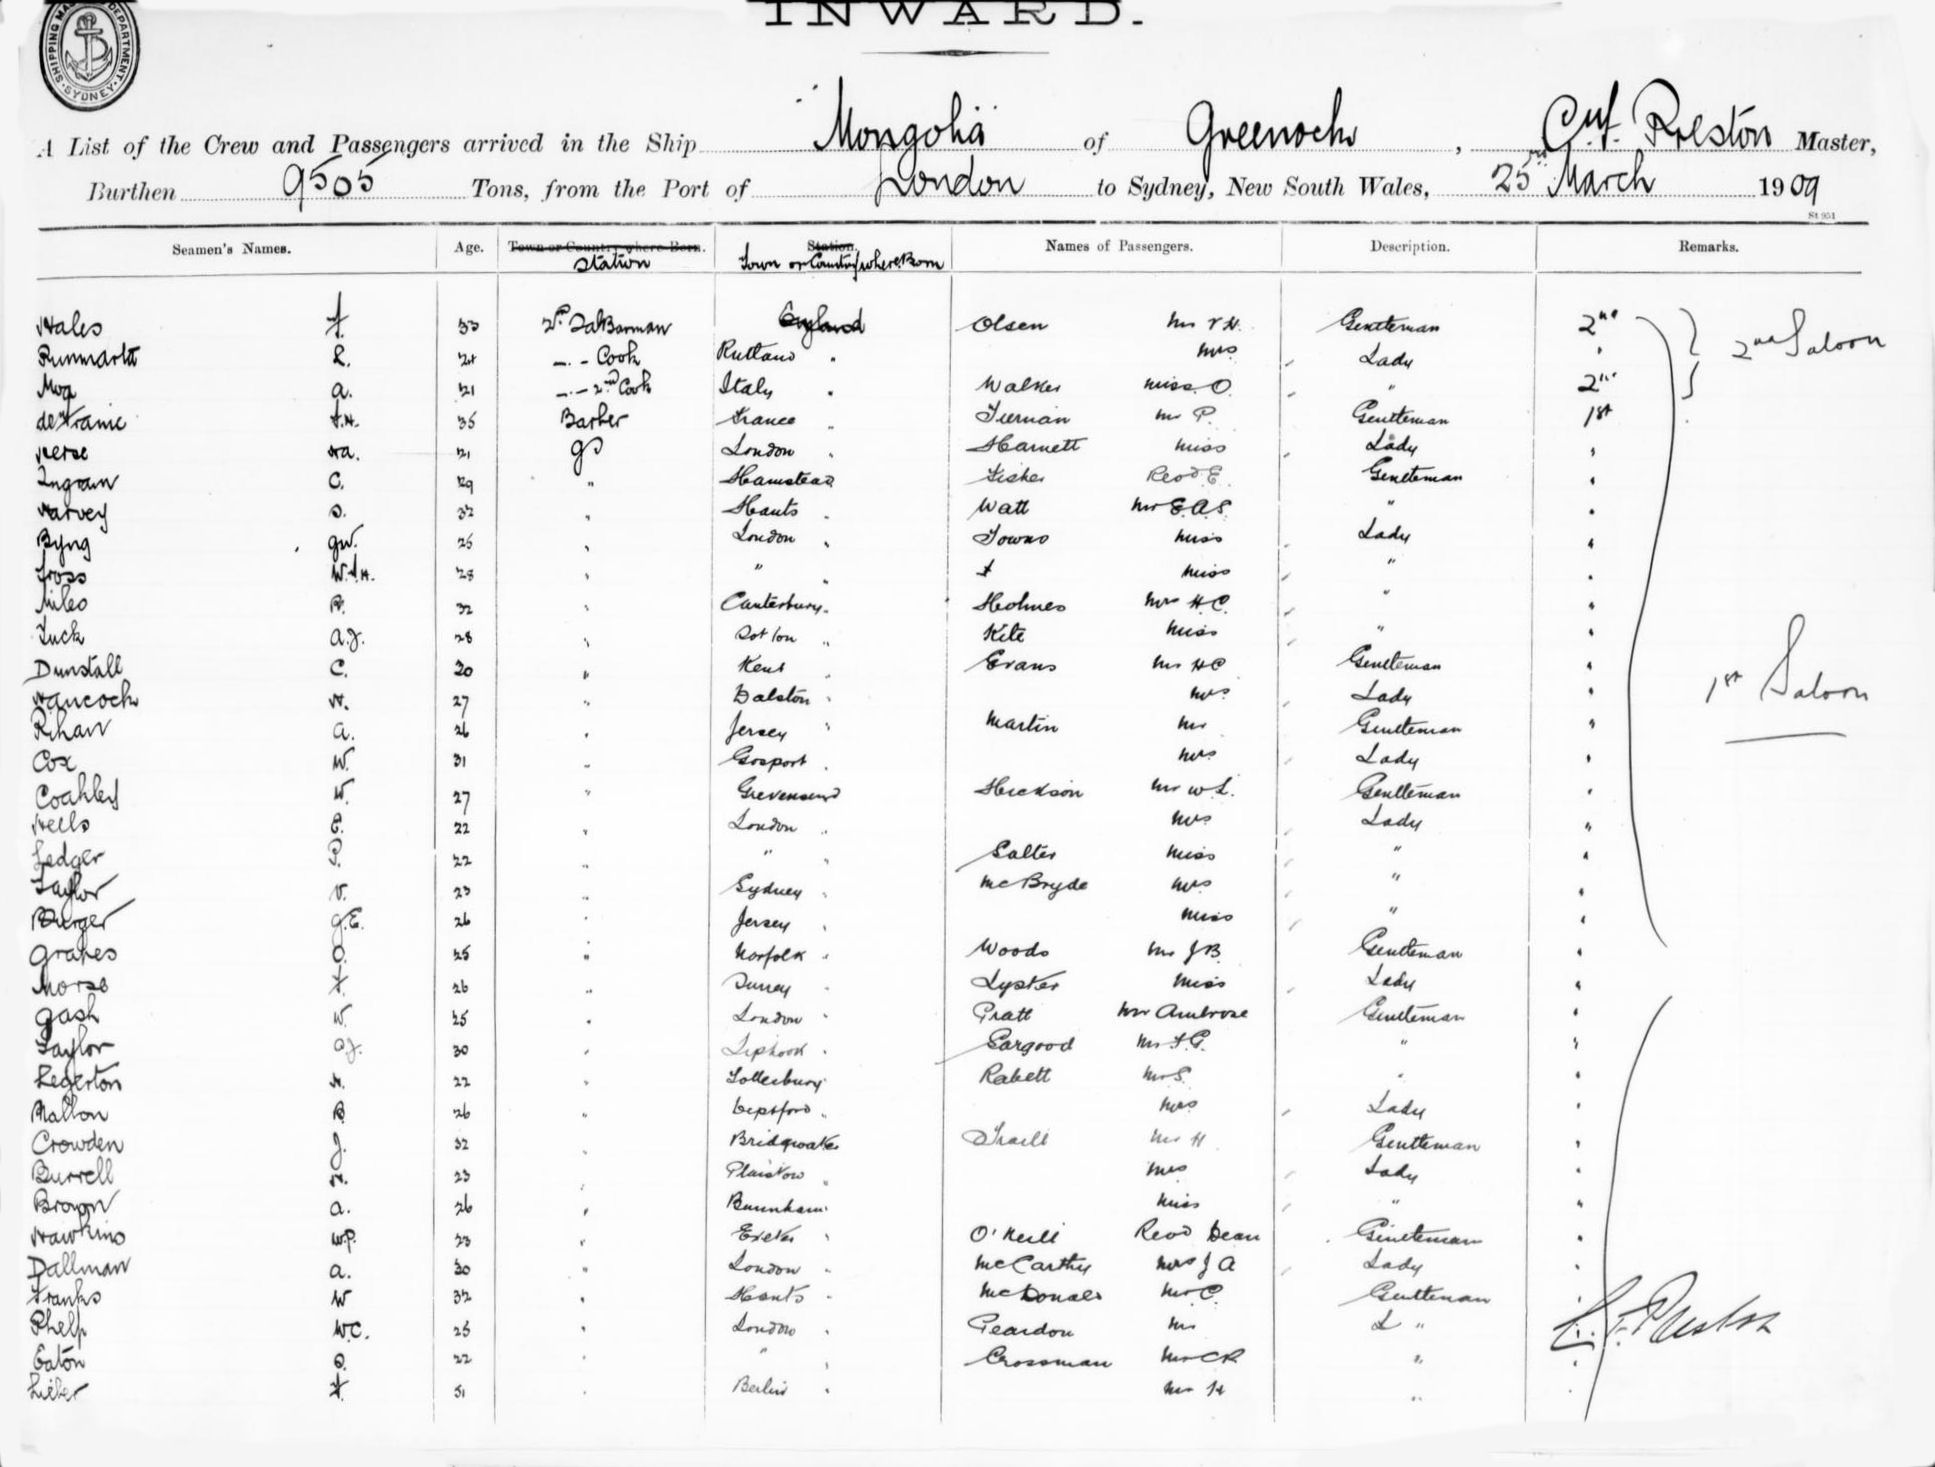 INWARD.
SHIPPING MASTER'S DEPARTMENT SYDNEY
A List of the Crew and Passengers arrived in the Ship "Mongolia" of Greenock, C.F. Preston Master,
Burthen 9505 Tons, from the Port of London to Sydney, New South Wales, 25th March 1909
St 951
Seamen's Names. Age. Town or Country where Born. Station. Names of Passengers. Description. Remarks.
Station Town or Country where Born
Hales F. 33 England Olsen Mr Gentleman 2nd
R. 24 Cook Rutland " Mrs Lady "
2nd Saloon
a. 21 2nd Cook Italy " Walker Miss O. " 2nd
35 Barber France " Tiernan Mr P. Gentleman 1st
21 gs London " Harnett Miss Lady "
Ingram C. 29 " Hamstead Fisher Revd E. Gentleman "
Harvey S. 32 " Hants " Watt Mr E.A.S. " "
Byng G.W. 25 " London " Towns Miss Lady "
W.F.H. 28 " " " Miss " "
Miles R. 32 " Canterbury " Holmes Mrs H.C. " "
Tuck A.J. 28 " Soton " Kite Miss " "
Dunstall C. 30 " Kent " Evans Mr H C Gentleman "
Hancock H. 27 " Dalston " Mrs Lady "
1st Saloon
Rihan a. 26 " Jersey " Martin Mr Gentleman "
Cox W. 31 " Gosport " Mrs Lady "
Coakley W. 27 " Gravensend Hickson Mr W.L. Gentleman "
Wells E. 22 " London " Mrs Lady "
Ledger P. 22 " " " Salter Miss " "
Taylor V. 23 " Sydney " McBryde Mrs " "
Burger G.E. 26 " Jersey " Miss " "
Graves O. 25 " Norfolk " Woods Mr J B. Gentleman "
Morse F. 26 " Surrey " Lyster Miss Lady "
Gash W. 25 " London " Pratt Mr Ambrose Gentleman "
Taylor A.J. 30 " Liphook " Sargood Mr F.G. " "
Legerton H. 22 " Tollesbury " Rabett Mr S. " "
Mallon B 26 " Deptford " Mrs Lady "
Crowden J. 32 " Bridgwater Traill Mr H Gentleman "
Burrell H. 23 " Plaistow " Mrs Lady "
Brown a. 26 " Burnham " Miss " "
Hawkins W.P. 23 " Exeter " O'Neill Revd Dean Gentleman "
Dallman a. 30 " London " McCarthy Mrs J A Lady "
Franks W 32 " Hants " McDonald Mr C. Gentleman "
Phelp W.C. 25 " London " Mr "
C.F. Preston
Eaton S. 22 " " " Crossman Mr C R " "
Lieber F. 31 " Berlin " Mr H " "